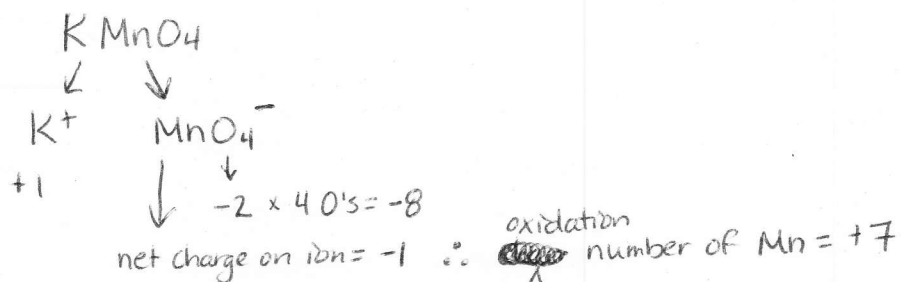 KMnO4
K+ MnO4-
+1
-2 × 4 O's = -8
net charge on ion = -1 ∴ oxidation number of Mn = +7